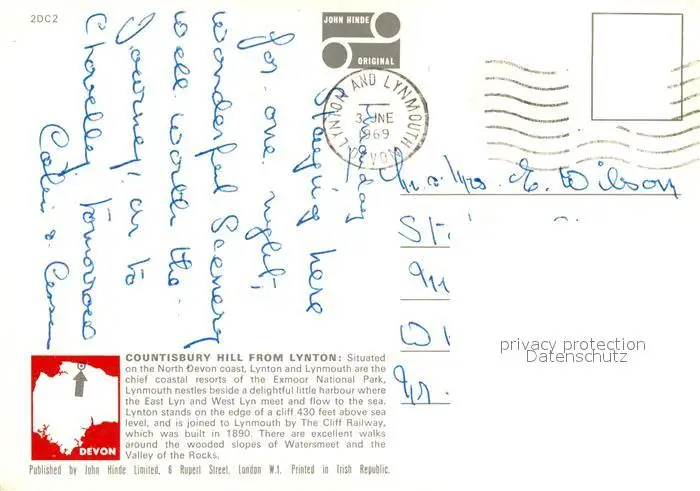 2DC2
JOHN HINDE
ORIGINAL
LYNTON AND LYNMOUTH
3 JNE
1969
DEVON
Monday
Staying here
for one night,
wonderful Scenery
well worth the
Journey! on to
Clovelly tomorrow
Colin &
Mr. & Mrs. E. Wilson
St
W
privacy protection
Datenschutz
DEVON
COUNTISBURY HILL FROM LYNTON: Situated
on the North Devon coast, Lynton and Lynmouth are the
chief coastal resorts of the Exmoor National Park,
Lynmouth nestles beside a delightful little harbour where
the East Lyn and West Lyn meet and flow to the sea.
Lynton stands on the edge of a cliff 430 feet above sea
level, and is joined to Lynmouth by The Cliff Railway,
which was built in 1890. There are excellent walks
around the wooded slopes of Watersmeet and the
Valley of the Rocks.
Published by John Hinde Limited, 6 Rupert Street, London W.1. Printed in Irish Republic.